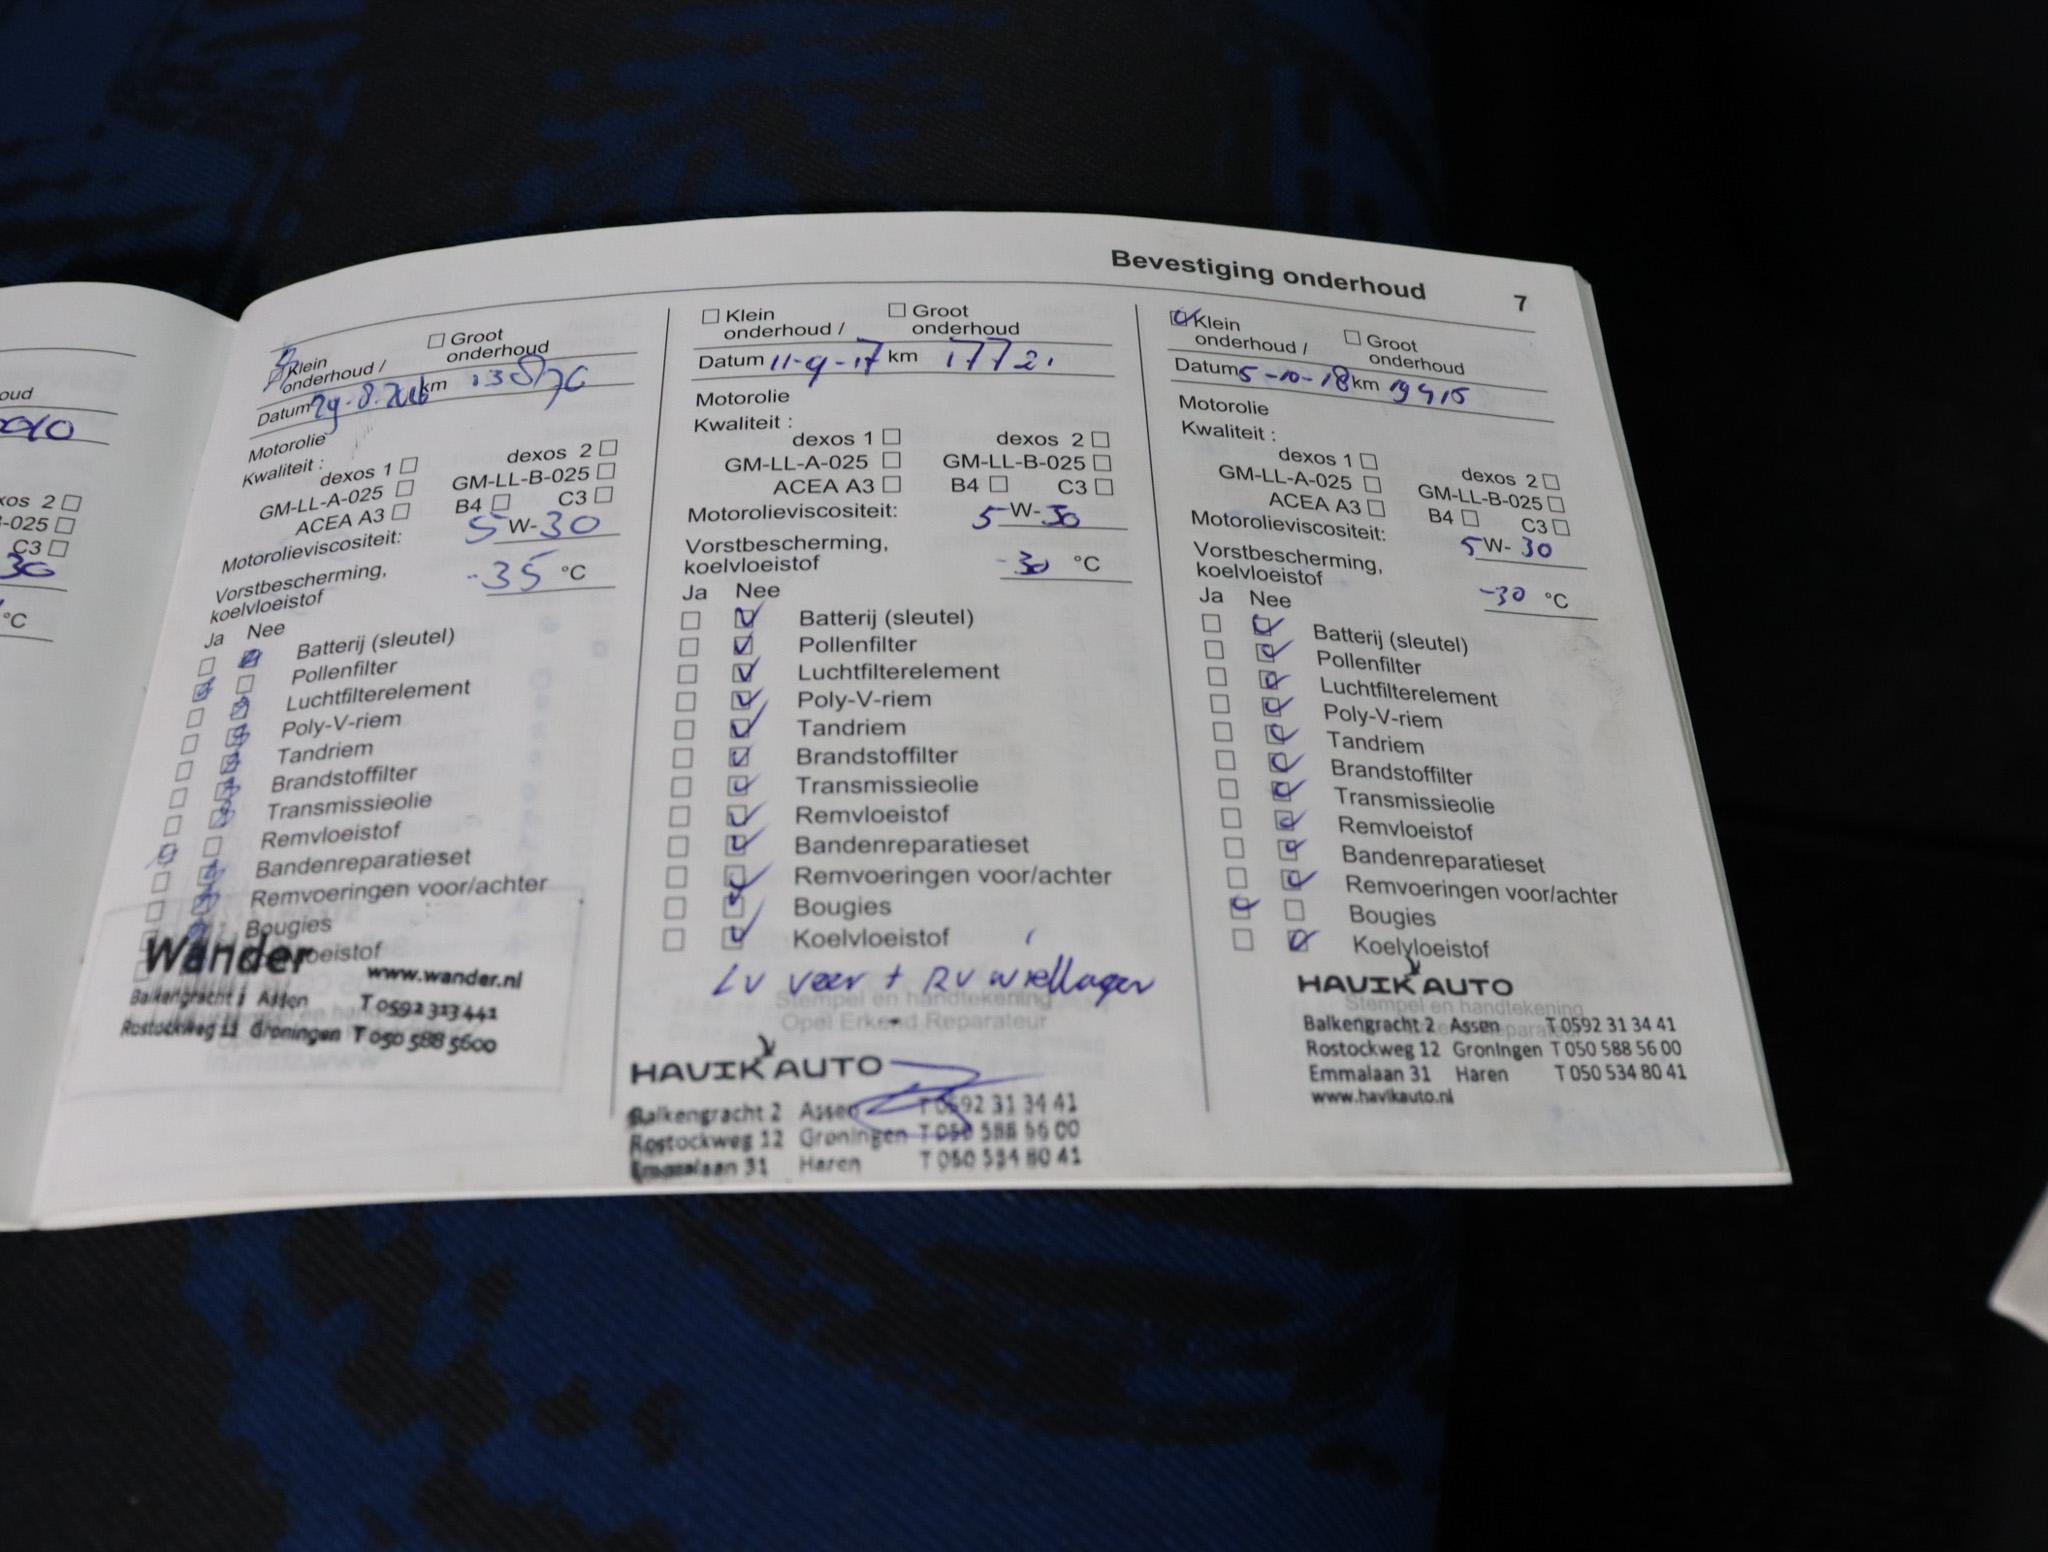 Bevestiging onderhoud 7
oud
xos 2
B-025
C3
30
°C
Klein onderhoud / Groot onderhoud
Datum 29-8-2016 km
Motorolie
Kwaliteit :
dexos 1 dexos 2
GM-LL-A-025 GM-LL-B-025
ACEA A3 B4 C3
Motorolieviscositeit: 5 W- 30
Vorstbescherming,
koelvloeistof -35 °C
Ja Nee
Batterij (sleutel)
Pollenfilter
Luchtfilterelement
Poly-V-riem
Tandriem
Brandstoffilter
Transmissieolie
Remvloeistof
Bandenreparatieset
Remvoeringen voor/achter
Bougies
loeistof
Wander
www.wander.nl
Balkengracht Assen T 0592 313 441
Rostockweg 12 Groningen T 050 588 5600
Klein onderhoud / Groot onderhoud
Datum 11-9-17 km 17721
Motorolie
Kwaliteit :
dexos 1 dexos 2
GM-LL-A-025 GM-LL-B-025
ACEA A3 B4 C3
Motorolieviscositeit: 5 W- 30
Vorstbescherming,
koelvloeistof -30 °C
Ja Nee
Batterij (sleutel)
Pollenfilter
Luchtfilterelement
Poly-V-riem
Tandriem
Brandstoffilter
Transmissieolie
Remvloeistof
Bandenreparatieset
Remvoeringen voor/achter
Bougies
Koelvloeistof
LV veer + RV wiellager
Stempel en handtekening
Opel Erkend Reparateur
HAVIK AUTO
Balkengracht 2 Assen T 0592 31 34 41
Rostockweg 12 Groningen T 050 588 56 00
Emmalaan 31 Haren T 050 534 80 41
Klein onderhoud / Groot onderhoud
Datum 5-10-18 km 19415
Motorolie
Kwaliteit :
dexos 1 dexos 2
GM-LL-A-025 GM-LL-B-025
ACEA A3 B4 C3
Motorolieviscositeit: 5 W- 30
Vorstbescherming,
koelvloeistof -30 °C
Ja Nee
Batterij (sleutel)
Pollenfilter
Luchtfilterelement
Poly-V-riem
Tandriem
Brandstoffilter
Transmissieolie
Remvloeistof
Bandenreparatieset
Remvoeringen voor/achter
Bougies
Koelvloeistof
HAVIK AUTO
Stempel en handtekening
Balkengracht 2 Assen T 0592 31 34 41
Rostockweg 12 Groningen T 050 588 56 00
Emmalaan 31 Haren T 050 534 80 41
www.havikauto.nl